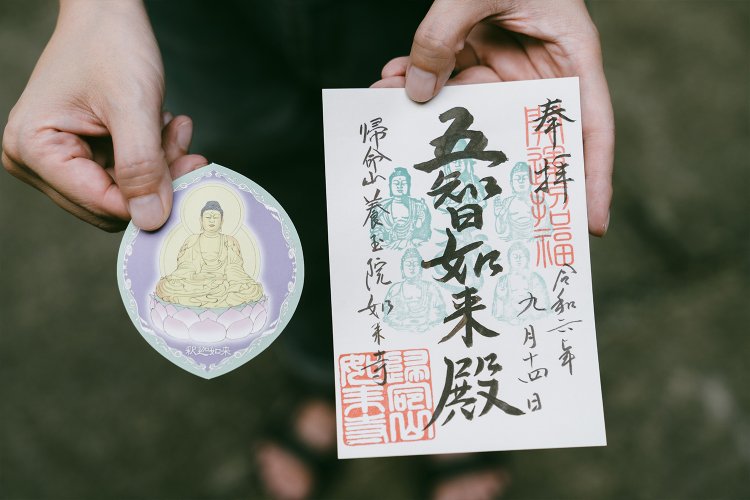 釈迦如来
奉拝
開運招福
令和六年
九月十四日
五智如来殿
帰命山養玉院如来寺
歸命山
如来寺